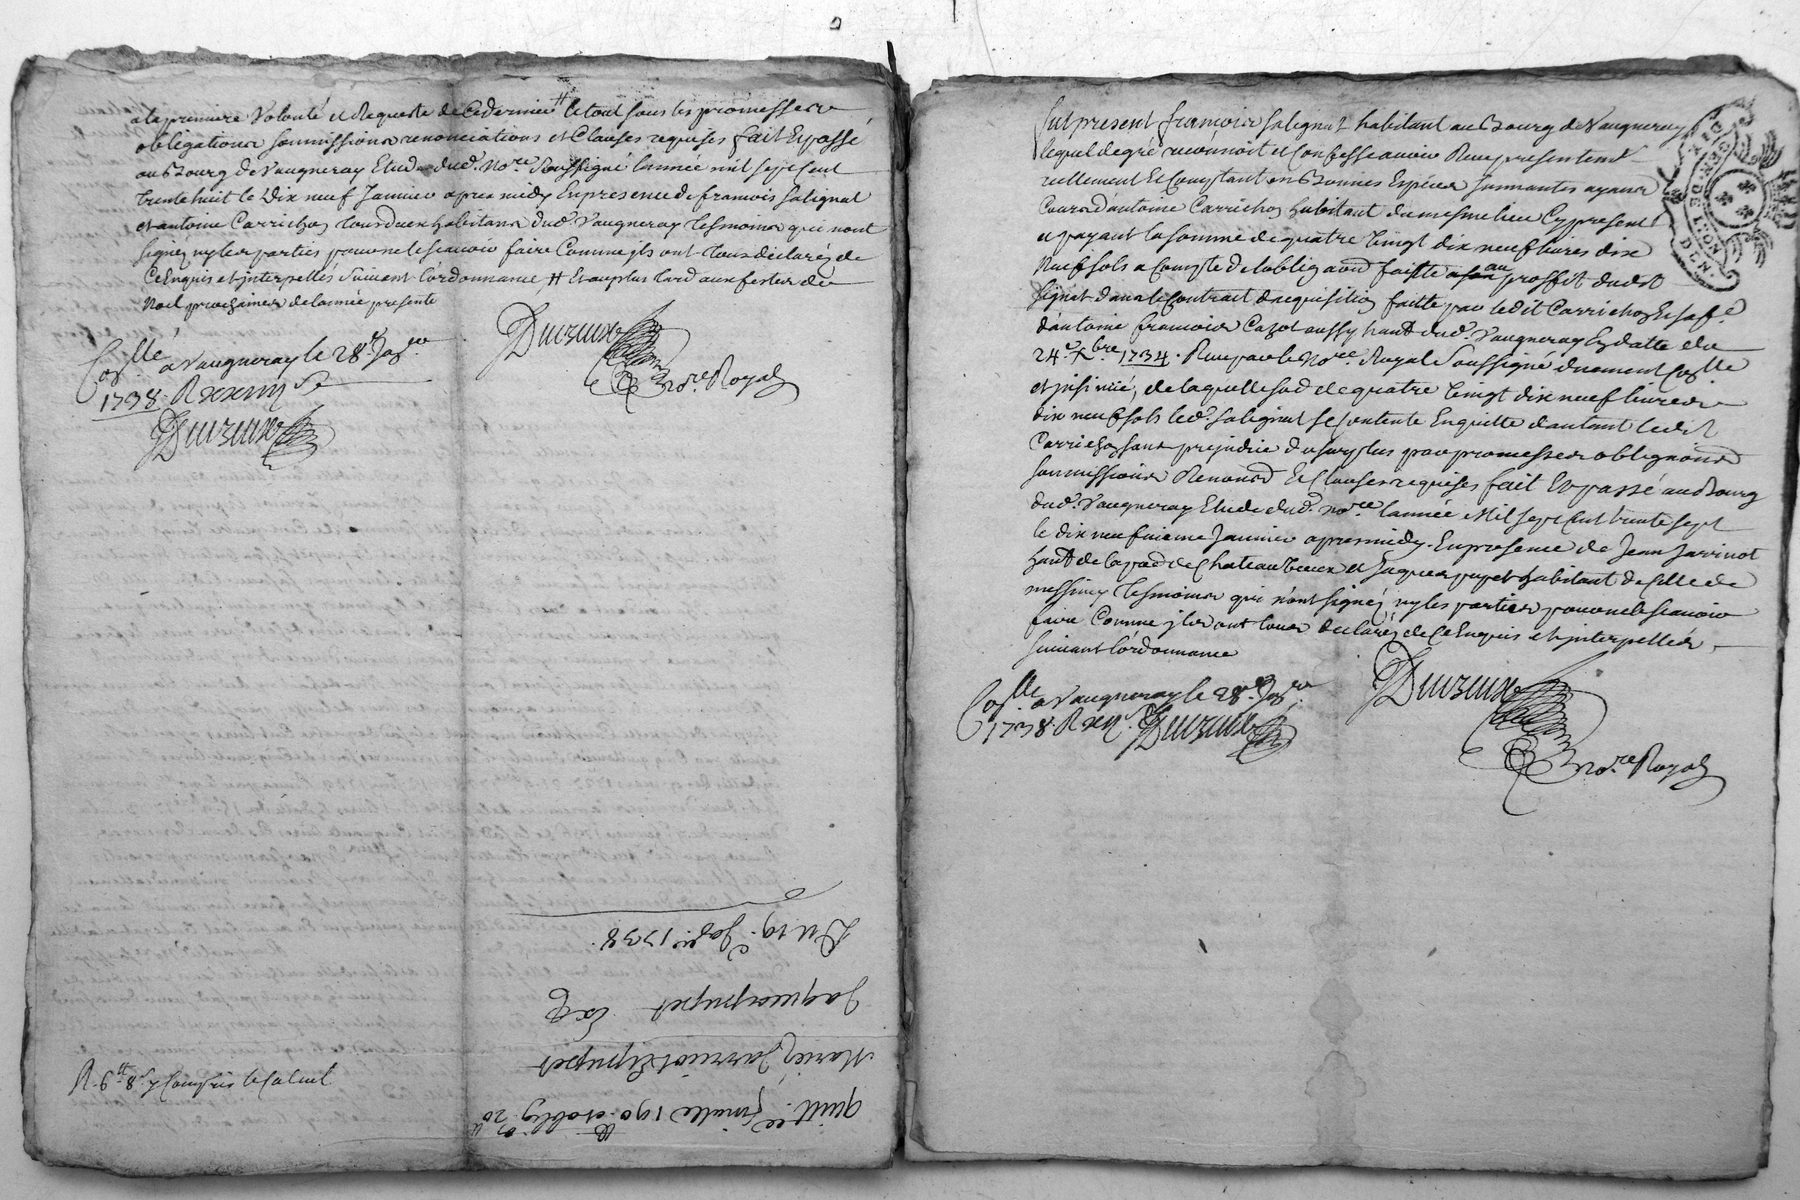 a la premiere Volonté et Requeste de Cedernier # le tout sous les promesses
obligations soumissions renonciations et Clauses requises fait Et passé
au Bourg de Vaugneray Etude dud. No.re soussigné lannée mil sept cent
trente huit le Dix neuf Janvier apres midy En presence de francois salignat
et antoine Carrichon tous deux habitans dud. Vaugneray tesmoins qui nont
signez ny les parties pour ne le scavoir faire Comme ils ont tous declaréz de
Ce Enquis et interpellés suivant l'ordonnance # Et au plus tard aux festes de
Noel prochaines de lannée presente
Con.llé a Vaugneray le 28.e Jan.er
1738. R
no.re Royal
R. 6.tt 8.s y Compris le Calcul
quitt.ce finale 190.tt et oblig.on 20.tt
Marie Jarrinot Et pupet
Jaques pupet
Du 19.e Jan.er 1738.
fut present francois salignat habitant au Bourg de Vaugneray
lequel de gré reconnoit et Confesse avoir Receu presentemt
reellement Et Comptant en Bonnes Especes sonnantes ayant
Cours d'antoine Carrichon habitant du mesme lieu Cy present
et payant la somme de quatre Vingt dix neuf livres dix
Neuf sols a Compte de lobligaon faitte au proffit dudt
signat dans le Contrat d'acquisition faitte par ledit Carrichon
d'antoine francois Cazot aussy habt dud. Vaugneray En datte du
24.e Xbre 1734. Receu par le No.re Royal soussigné duement Con.llé
et insinué, de laquelle sod de quatre Vingt dix neuf livres
dix neuf sols led. salignat se Contente En quitte d'autant ledit
Carrichon sans prejudice du surplus par promesses obligaons
soumissions Renond Et Clauses requises fait Et passé au Bourg
dud. Vaugneray Etude dud. no.re lannée Mil sept Cent trente sept
le dix neufvieme Janvier apres midy. En presence de Jean Jarrinot
habt de la parr.e de Chateauvieux et Jaques pupet habitant de Celle de
messimy tesmoins qui n'ont signéz ny les parties pour ne le scavoir
faire Comme ils ont tous declaréz de Ce Enquis et interpellés
suivant l'ordonnance
Con.llé a Vaugneray le 28.e Jan.er
1738. R
no.re Royal